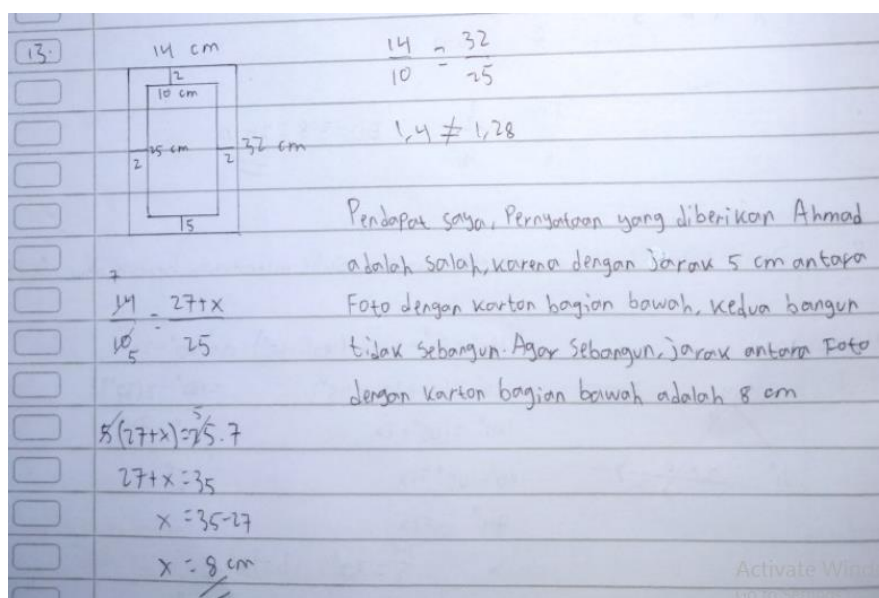 13.
14 cm
2
10 cm
25 cm
2
2
32 cm
5
14/10 = 32/25
1,4 ≠ 1,28
Pendapat saya, Pernyataan yang diberikan Ahmad
adalah salah, karena dengan jarak 5 cm antara
Foto dengan karton bagian bawah, kedua bangun
tidak sebangun. Agar Sebangun, jarak antara Foto
dengan karton bagian bawah adalah 8 cm
7
14/10 = 27+x/25
5
5
5(27+x)=25.7
27+x=35
x=35-27
x=8 cm